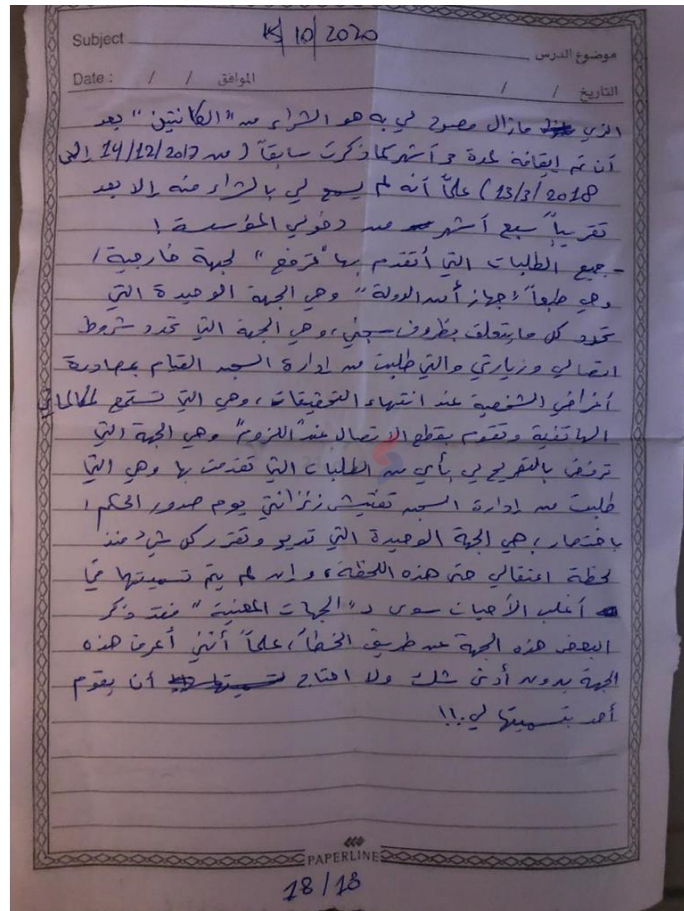 Subject
15/10/2020
موضوع الدرس
Date : / /
الموافق
/ / التاريخ
الذي مازال مصرح لي به هو الشراء من "الكانتين" بعد
أن تم إيقافه لمدة 3 أشهر كما ذكرت سابقاً (من 14/12/2017 إلى
13/3/2018) علماً أنه لم يسمح لي بالشراء منه إلا بعد
تقريباً سبع أشهر من دخولي المؤسسة!
- جميع الطلبات التي أتقدم بها "ترفع" لجهة خارجية/
وهي طبعاً "جهاز أمن الدولة" وهي الجهة الوحيدة التي
تحدد كل ما يتعلق بظروف سجني، وهي الجهة التي تحدد شروط
اتصالي وزيارتي والتي طلبت من إدارة السجن القيام بمصادرة
أغراضي الشخصية عند انتهاء التحقيقات، وهي التي تستمع لمكالماتي
الهاتفية وتقوم بقطع الاتصال عند "اللزوم" وهي الجهة التي
ترفض بالتصريح لي بأي من الطلبات التي تقدمت بها وهي التي
طلبت من إدارة السجن تفتيش زنزانتي يوم صدور الحكم،
باختصار، هي الجهة الوحيدة التي تدير وتقرر كل شيء منذ
لحظة اعتقالي حتى هذه اللحظة، وإن لم يتم تسميتها في
أغلب الأحيان سوى د "الجهات المعنية" فقد ذكر
البعض هذه الجهة عن طريق الخطأ، علماً أنني أعرف هذه
الجهة بدون أدنى شك ولا احتاج أن يقوم
أحد بتسميتها لي..!!
PAPERLINE
18/13